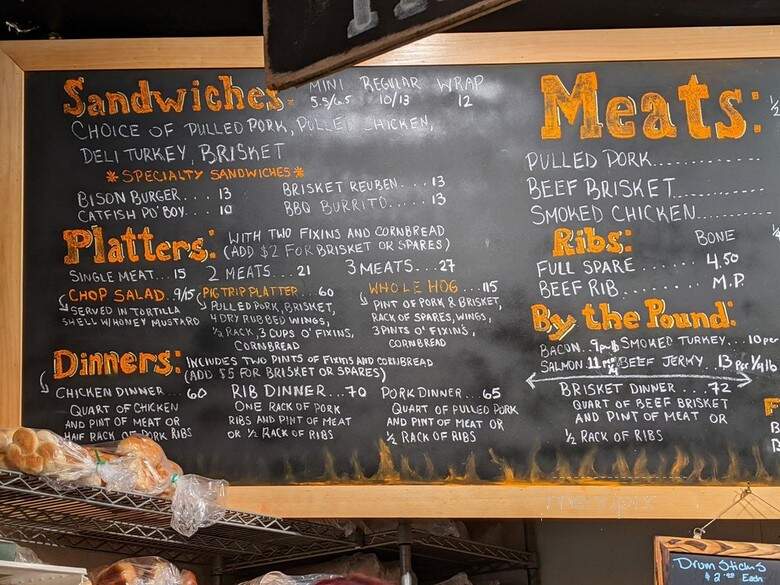 Sandwiches: MINI REGULAR WRAP
5.5/6.5 10/13 12
CHOICE OF PULLED PORK, PULLED CHICKEN,
DELI TURKEY, BRISKET
*SPECIALTY SANDWICHES*
BISON BURGER.... 13
CATFISH PO'BOY.... 10
BRISKET REUBEN.... 13
BBQ BURRITO..... 13
Platters: WITH TWO FIXINS AND CORNBREAD
(ADD $2 FOR BRISKET OR SPARES)
SINGLE MEAT... 15 2 MEATS.... 21 3 MEATS... 27
CHOP SALAD. 9/15
SERVED IN TORTILLA
SHELL W/HONEY MUSTARD
PIG TRIP PLATTER... 60
PULLED PORK, BRISKET,
4 DRY RUBBED WINGS,
1/2 RACK, 3 CUPS O' FIXINS,
CORNBREAD
WHOLE HOG... 115
PINT OF PORK & BRISKET,
RACK OF SPARES, WINGS,
3 PINTS O' FIXINS,
CORNBREAD
Dinners: INCLUDES TWO PINTS OF FIXINS AND CORNBREAD
(ADD $5 FOR BRISKET OR SPARES)
CHICKEN DINNER... 60
QUART OF CHICKEN
AND PINT OF MEAT OR
HALF RACK OF PORK RIBS
RIB DINNER...70
ONE RACK OF PORK
RIBS AND PINT OF MEAT
OR 1/2 RACK OF RIBS
PORK DINNER... 65
QUART OF PULLED PORK
AND PINT OF MEAT OR
1/2 RACK OF RIBS
Meats: 1/2
PULLED PORK..............
BEEF BRISKET..............
SMOKED CHICKEN..........
Ribs: BONE
FULL SPARE......... 4.50
BEEF RIB.......... M.P.
By the Pound:
BACON.. SMOKED TURKEY... 10 per
SALMON BEEF JERKY.. 13 Per 1/4 lb
BRISKET DINNER ...72
QUART OF BEEF BRISKET
AND PINT OF MEAT OR
1/2 RACK OF RIBS
Drum Sticks
$2.00 Each